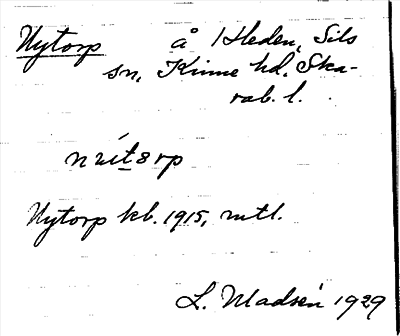 Nytorp å Heden, Sils
sn, Kinne hd, Ska-
rab. l.
Nytorp kb. 1915, mtl.
L. Madsén 1929